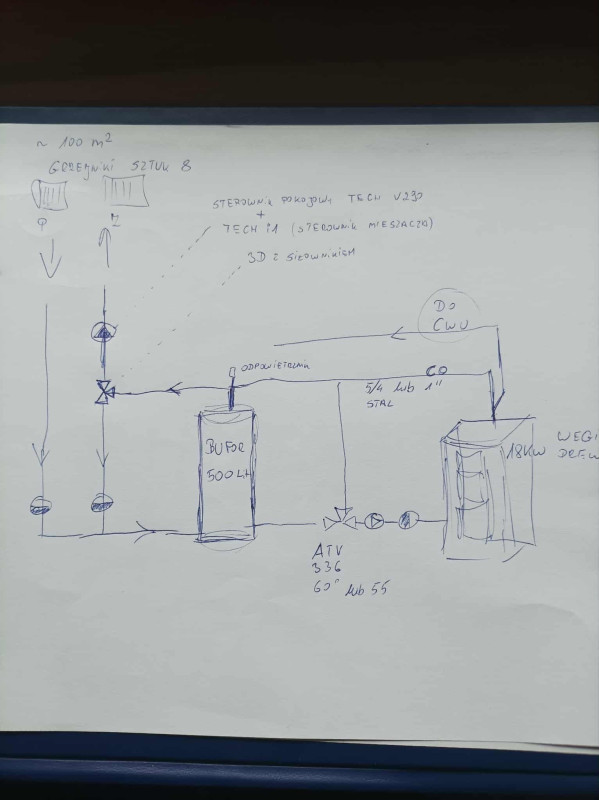 ~ 100 m²
GRZEJNIKI SZTUK 8
P
Z
STEROWNIK POKOJOWY TECH V230
+
TECH i1 (STEROWNIK MIESZACZA)
3D Z SIŁOWNIKIEM
DO
CWU
ODPOWIETRZNIK
CO
5/4 lub 1"
STAL
BUFOR
500 Lit
18KW
WEGI
DREW
ATV
336
60° lub 55